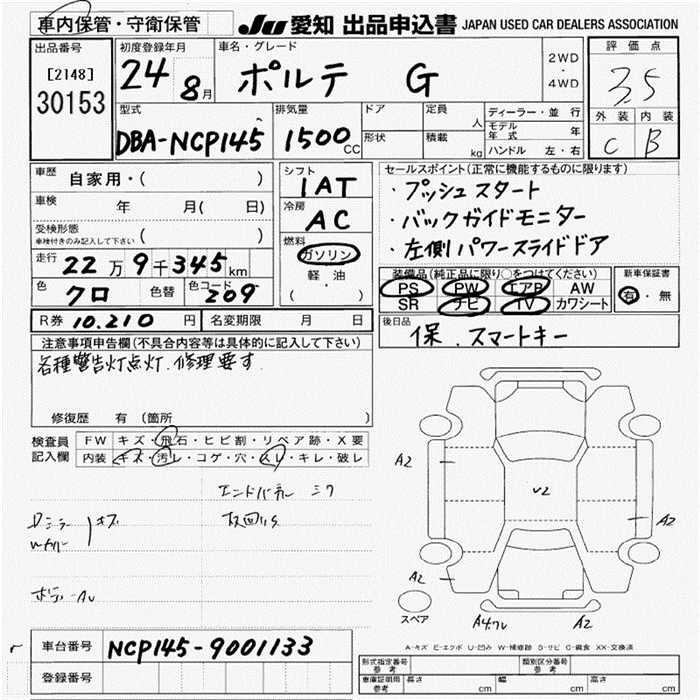 車内保管・守衛保管
JU 愛知 出品申込書 JAPAN USED CAR DEALERS ASSOCIATION
出品番号
[2148]
30153
初度登録年月
24 8月
車名・グレード
ポルテ G
2WD
・
4WD
評価点
3.5
外装 内装
C B
型式
DBA-NCP145
排気量
1500 CC
ドア
形状
定員 人
積載 kg
ディーラー・並行
モデル年式 年
ハンドル 左・右
車歴 自家用・( )
車検 年 月( 日)
受検形態
車検付きのみ記入して下さい ( )
走行 22万9千345km
色 クロ 色替 色コード 209
シフト
1AT
冷房
AC
燃料
ガソリン
軽・油
( )
セールスポイント(正常に機能するものに限ります)
・プッシュスタート
・バックガイドモニター
・左側パワースライドドア
装備品(純正品に限り○をつけてください)
PS PW エアB AW
SR ナビ TV カワシート
新車保証書
有・無
R券 10.210円 名変期限 月 日
後日品
保.スマートキー
注意事項申告欄(不具合内容等は具体的に記入して下さい)
各種警告灯点灯.修理要す.
修復歴 有(箇所 )
検査員記入欄
FW キズ・飛石・ヒビ割・リペア跡・X要
内装 キズ・汚レ・コゲ・穴・スレ・キレ・破レ
キズ
A2
V2
A2
A2
スペア
A2
A-キズ E-エクボ U-凹み W-補修跡 S-サビ C-腐食 XX-交換済
車台番号 NCP145-9001133
登録番号
形式指定番号 参考
類別区分番号 参考
車庫証明用 参考
長さ cm 幅 cm 高さ cm